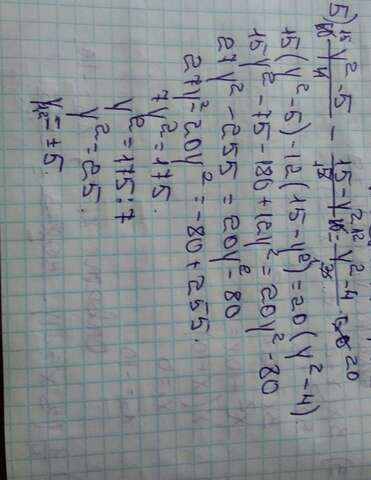 5) 15 y²-5 / 4 - 15-y² 12 / 5 = y²-4 20 / 3
15(y²-5)-12(15-y²)=20(y²-4)
15y²-75-186+12y²=20y²-80
27y²-255=20y²-80
27y²-20y²=-80+255.
7y²=175.
y²=175:7
y²=25.
y=±5.